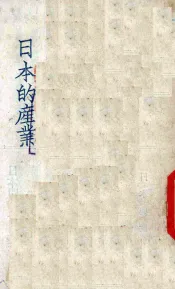 日本的產業